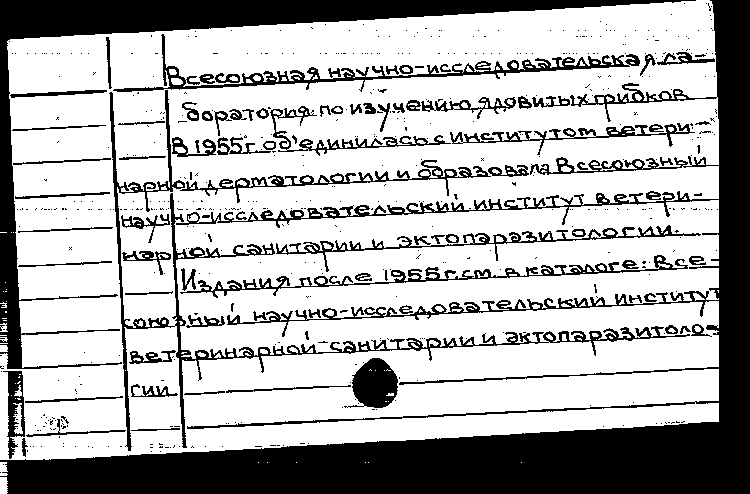 Всесоюзная научно-исследовательская ла-
боратория по изучению ядовитых грибков
В 1955г. об'единилась с институтом ветери-
нарной дерматологии и образовала Всесоюзный
научно-исследовательский институт ветери-
нарной санитарии и эктопаразитологии.
Издания после 1955г. см. в каталоге: Все-
союзный научно-исследовательский институт
ветеринарной санитарии и эктопаразитоло-
гии